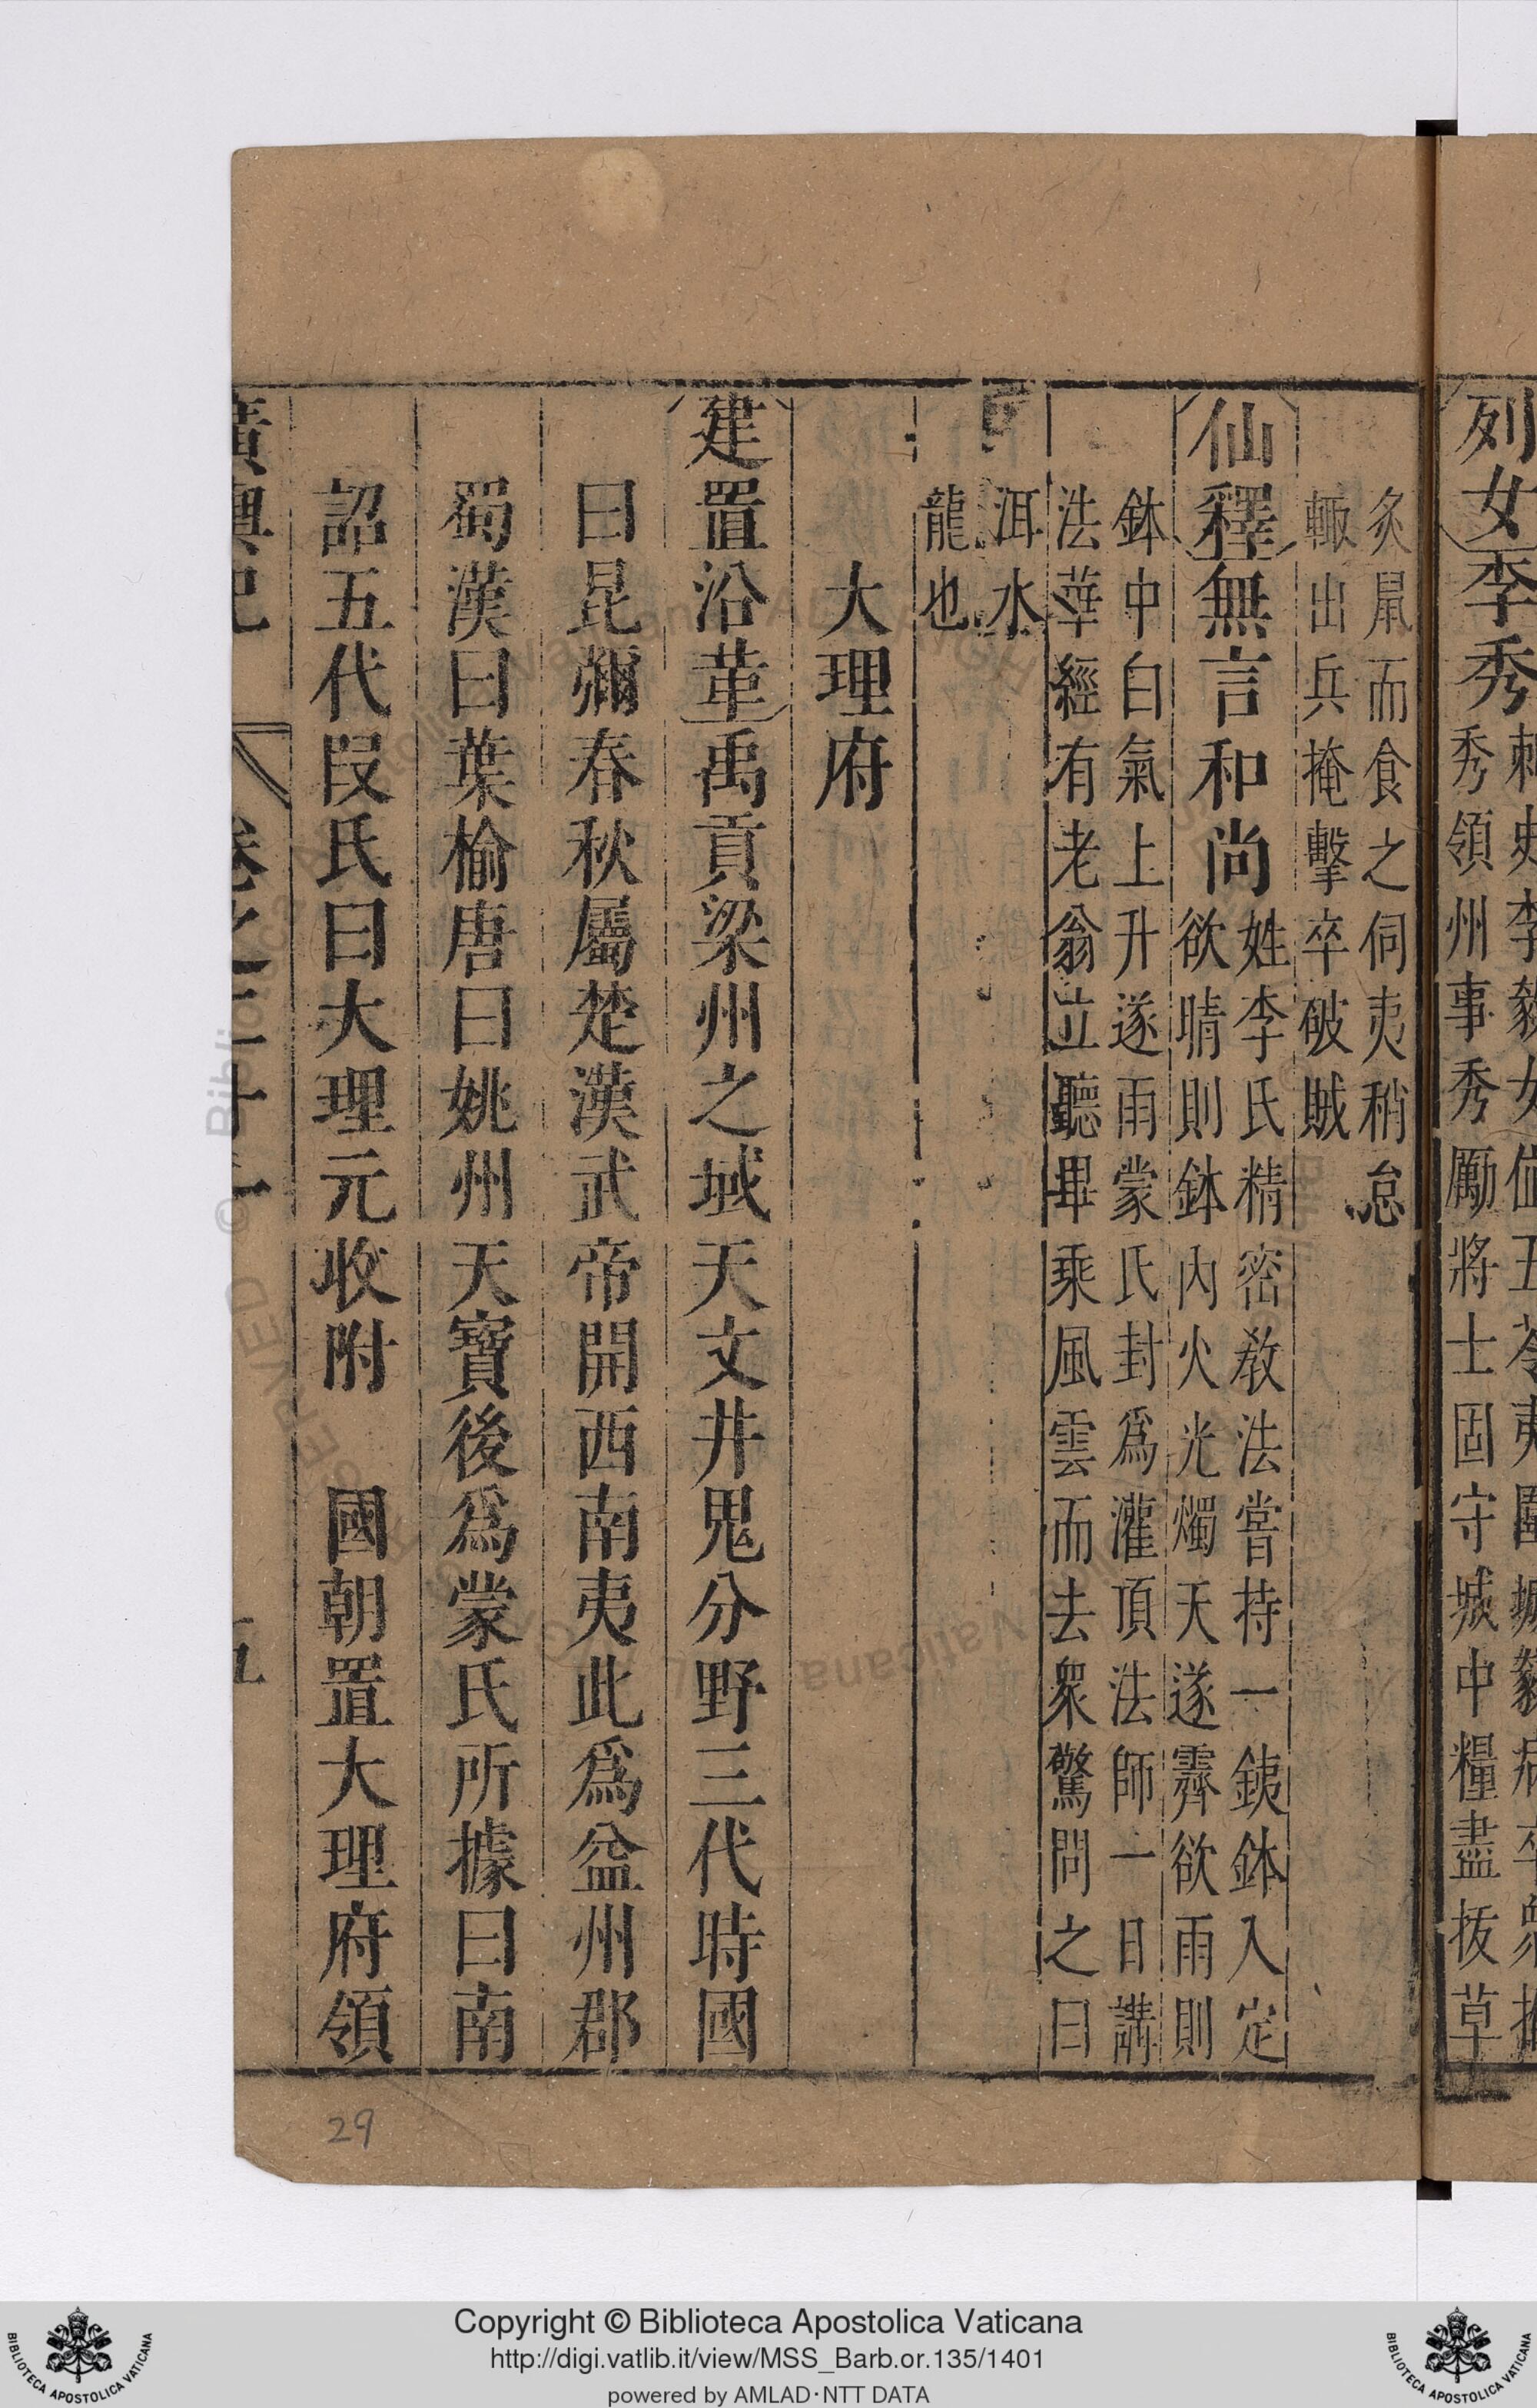 列女李秀
刺史李毅女值五苓夷圍城毅病卒衆推
秀領州事秀勵將士固守城中糧盡拔草
炙鼠而食之伺夷稍怠
輙出兵掩擊卒破賊
仙釋無言和尚
姓李氏精密教法嘗持一銕鉢入定
欲晴則鉢内火光燭天遂霽欲雨則
鉢中白氣上升遂雨蒙氏封爲灌頂法師一日講
法華經有老翁立聽畢乘風雲而去衆驚問之曰
洱水
龍也
大理府
建置沿革禹貢梁州之域天文井鬼分野三代時國
曰昆彌春秋屬楚漢武帝開西南夷此爲益州郡
蜀漢曰葉榆唐曰姚州天寶後爲蒙氏所據曰南
詔五代段氏曰大理元收附　國朝置大理府領
廣輿記 卷之二十一 五
29
Copyright © Biblioteca Apostolica Vaticana
http://digi.vatlib.it/view/MSS_Barb.or.135/1401
powered by AMLAD·NTT DATA
BIBLIOTECA APOSTOLICA VATICANA
BIBLIOTECA APOSTOLICA VATICANA